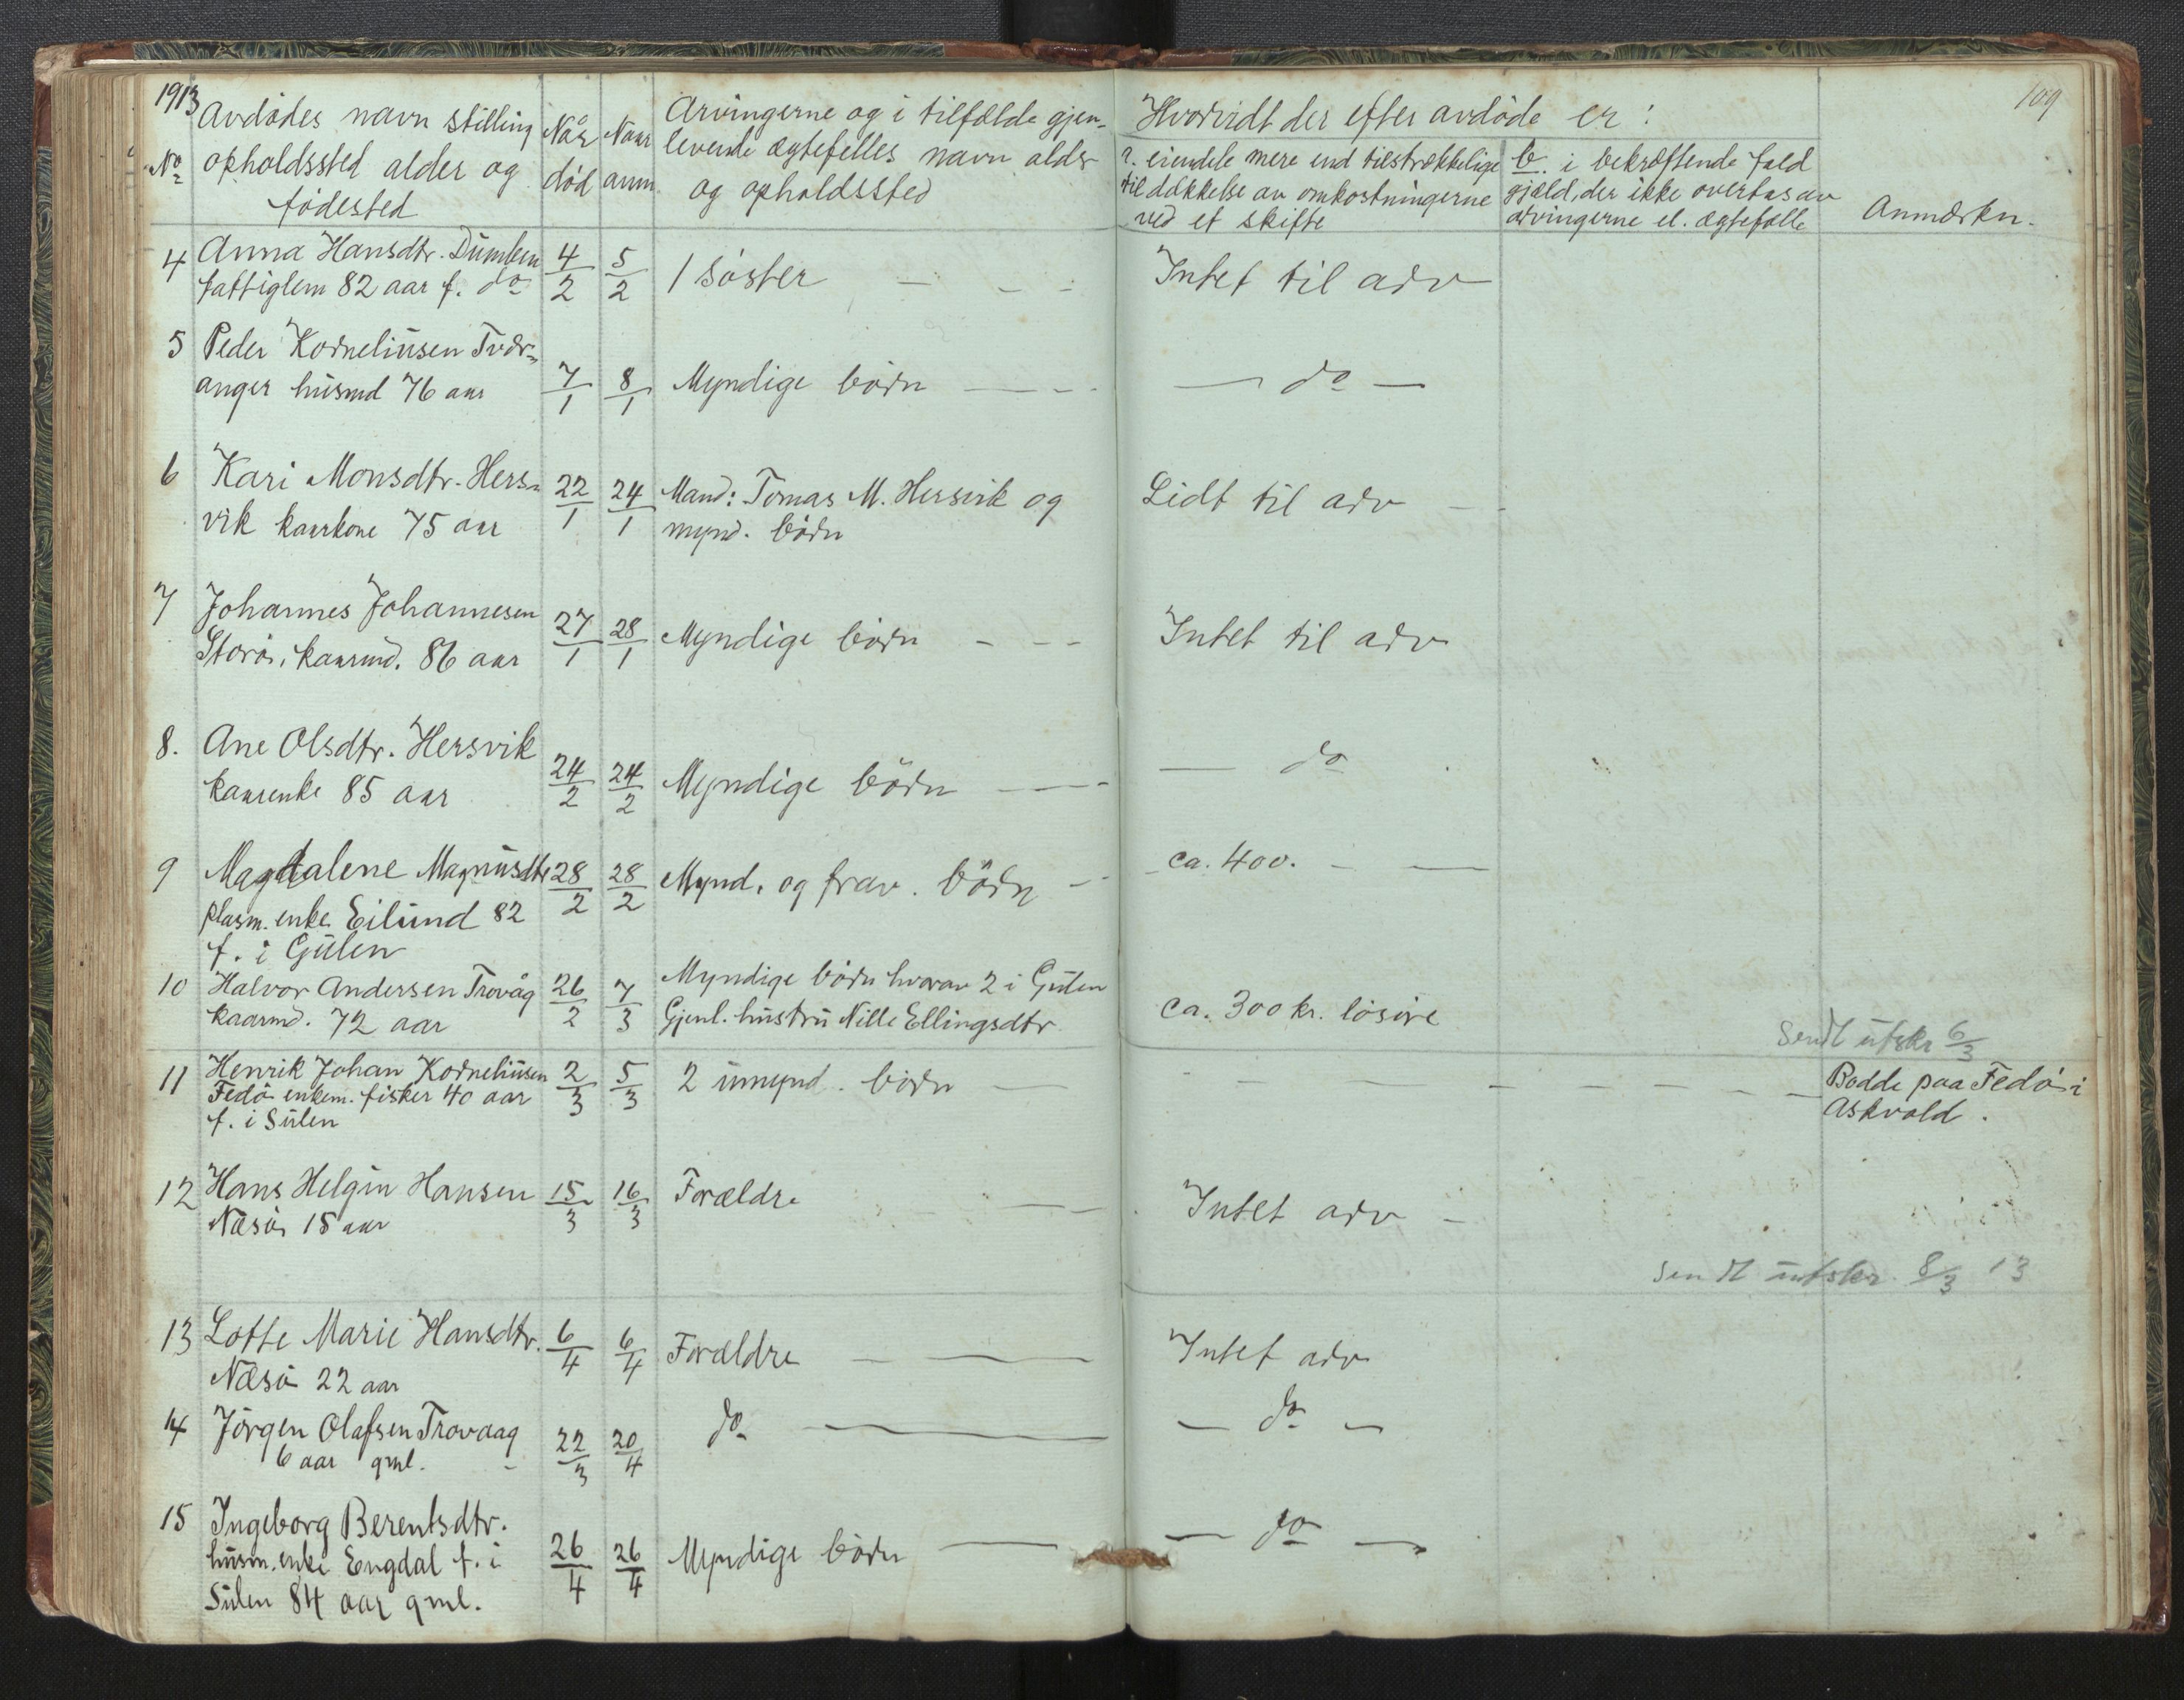 1913
109
No
Avdødes navn stilling
opholdssted alder og
fødested
Når
død
Naar
anm
Arvingerne og i tilfælde gjen-
levende ægtefelles navn alder
og opholdssted
Hvorvidt der efter avdøde er:
a. eiendele mere end tilstrækkelige
til dækkelse av omkostningerne
ved et skifte
b. i bekræftende fald
gjæld, der ikke overtas av
arvingerne el. ægtefælle
Anmærkn.
4 Anna Hansdtr. Dumben 4/2 5/2 1 søster - - - Intet til arv
fattiglem 82 aar f. do
5 Peder Korneliusen Tvær-
anger husmd 76 aar 7/1 8/1 Myndige børn — - - — do —
6 Kari Monsdtr. Hers- 22/1 24/1 Mand: Tomas M. Hersvik og Lidt til arv - -
vik kaarkone 75 aar mynd. børn
7 Johannes Johannesen 27/1 28/1 Myndige børn - - - Intet til arv
Storø, kaarmd. 86 aar
8. Ane Olsdtr. Hersvik 24/2 24/2 Myndige børn — - - — do
kaarenke 85 aar
9 Magdalene Magnusdtr 28/2 28/2 Mynd. og frav. børn - - ca. 400. - —
plasm. enke Eilund 82
f. i Gulen
10 Halvor Andersen Trovåg 26/2 7/3 Myndige børn hvorav 2 i Gulen ca. 300 kr. løsøre
kaarmd. 72 aar Gjenl. hustru Nille Ellingsdtr
Sendt utskr 6/3
11 Henrik Johan Korneliusen 2/3 5/3 2 umynd. børn — - — - - - - - Bodde paa Fedø i
Fedø enkem. fisker 40 aar Askvold.
f. i Sulen
12 Hans Helgin Hansen 15/3 16/3 Forældre — - Intet arv -
Næsø 18 aar
Sendt utskr. 8/3 13
13 Lotte Marie Hansdtr. 6/4 6/4 Forældre — — Intet arv
Næsø 22 aar
14 Jørgen Olafsen Trovaag 22/3 20/4 do — — do —
6 aar gml. -
15 Ingeborg Berentsdtr. 26/4 26/4 Myndige børn — — do —
husm. enke Engdal f. i
Sulen 84 aar gml.